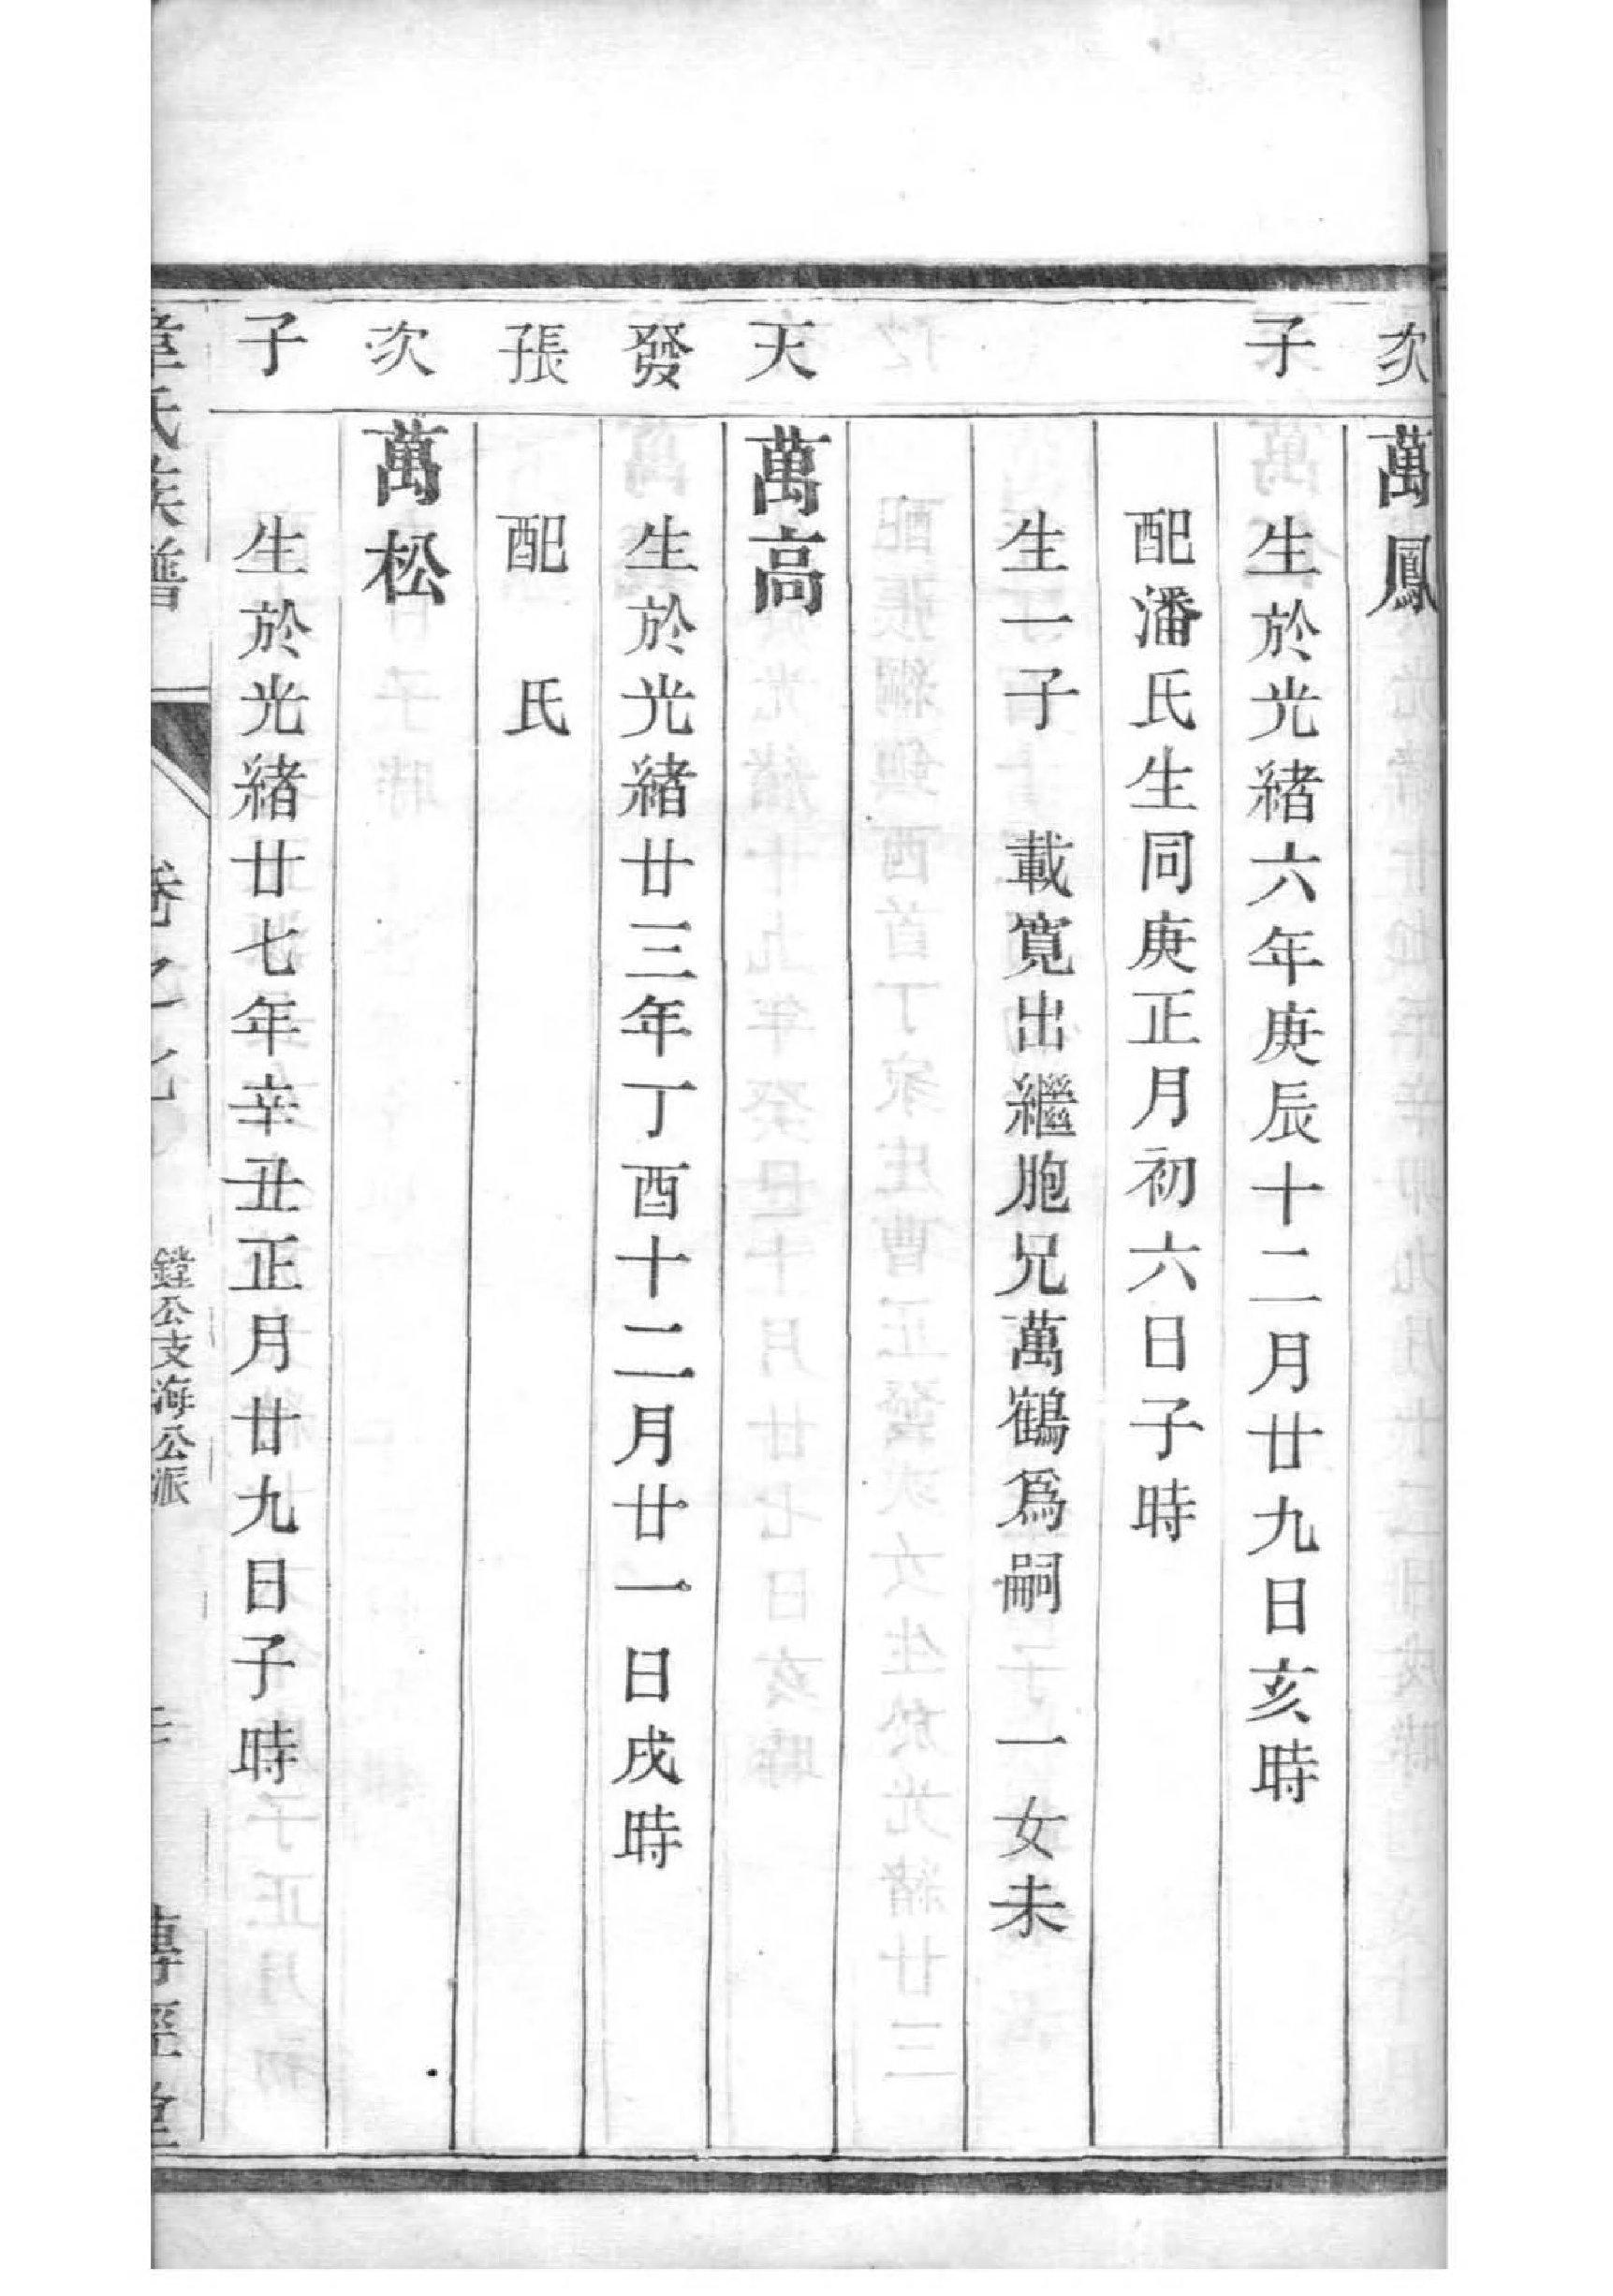 次
萬鳳
子
生於光緒六年庚辰十二月廿九日亥時
配潘氏生同庚正月初六日子時
生一子　載寬出繼胞兄萬鶴爲嗣　一女未
天
萬高
發
生於光緒廿三年丁酉十二月廿一日戌時
長
配　氏
次
萬松
子
生於光緒廿七年辛丑正月廿九日子時
章氏族譜
卷之七
鏜公支海公派
傳經堂